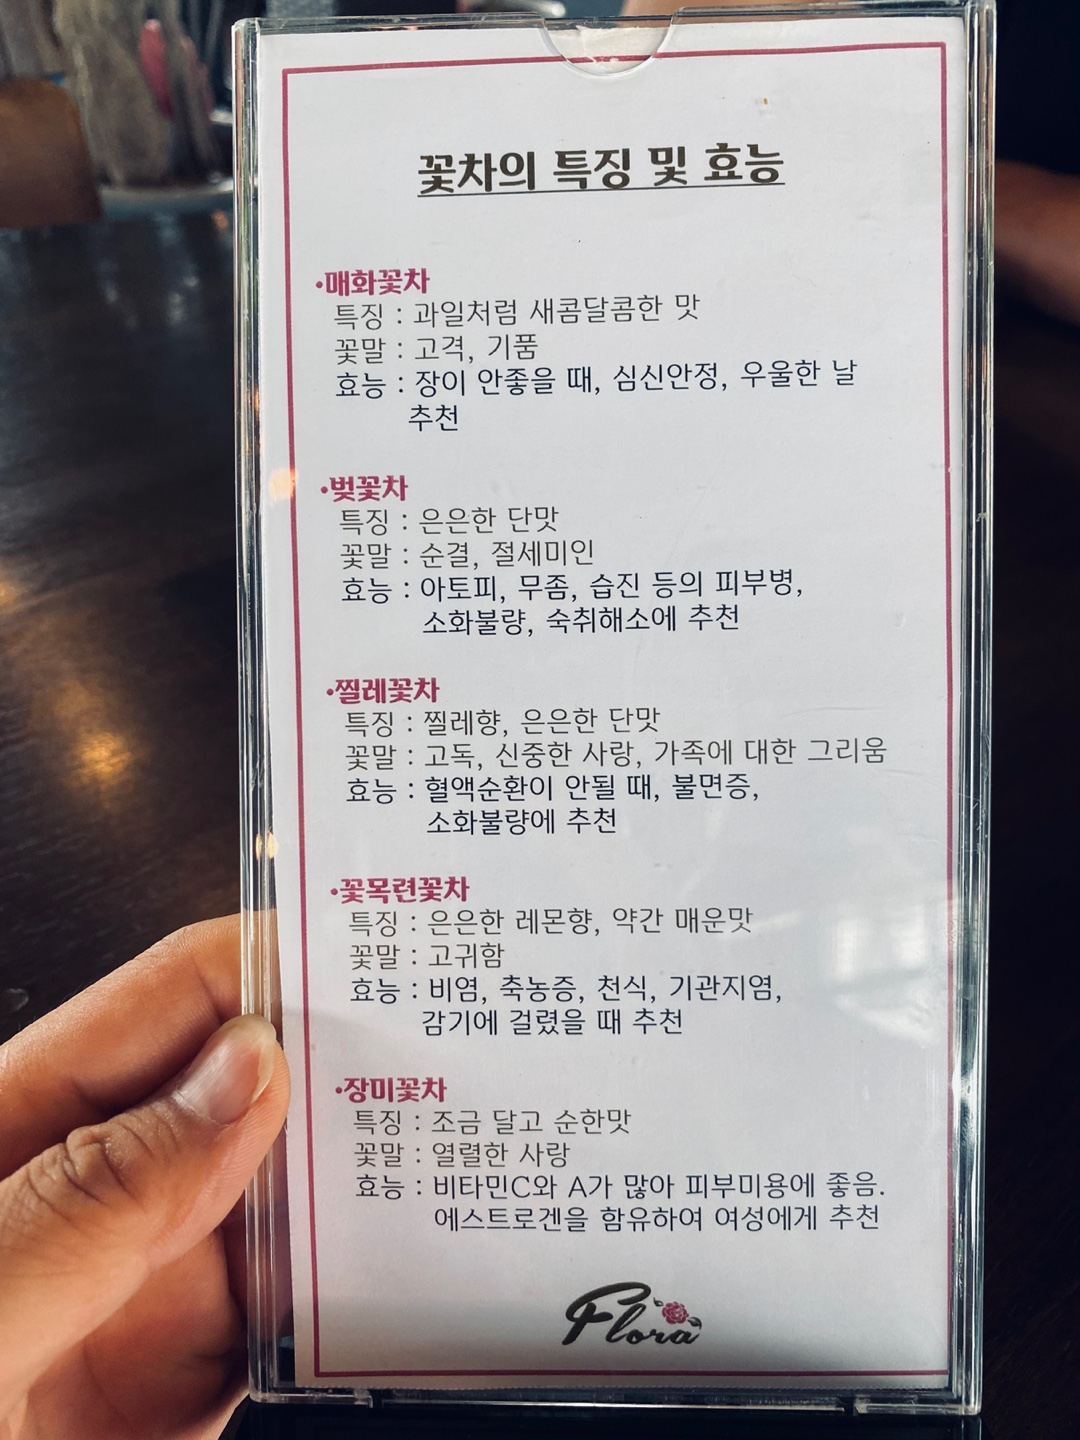 꽃차의 특징 및 효능
•매화꽃차
특징 : 과일처럼 새콤달콤한 맛
꽃말 : 고격, 기품
효능 : 장이 안좋을 때, 심신안정, 우울한 날
추천
•벚꽃차
특징 : 은은한 단맛
꽃말 : 순결, 절세미인
효능 : 아토피, 무좀, 습진 등의 피부병,
소화불량, 숙취해소에 추천
•찔레꽃차
특징 : 찔레향, 은은한 단맛
꽃말 : 고독, 신중한 사랑, 가족에 대한 그리움
효능 : 혈액순환이 안될 때, 불면증,
소화불량에 추천
•꽃목련꽃차
특징 : 은은한 레몬향, 약간 매운맛
꽃말 : 고귀함
효능 : 비염, 축농증, 천식, 기관지염,
감기에 걸렸을 때 추천
•장미꽃차
특징 : 조금 달고 순한맛
꽃말 : 열렬한 사랑
효능 : 비타민C와 A가 많아 피부미용에 좋음.
에스트로겐을 함유하여 여성에게 추천
Flora